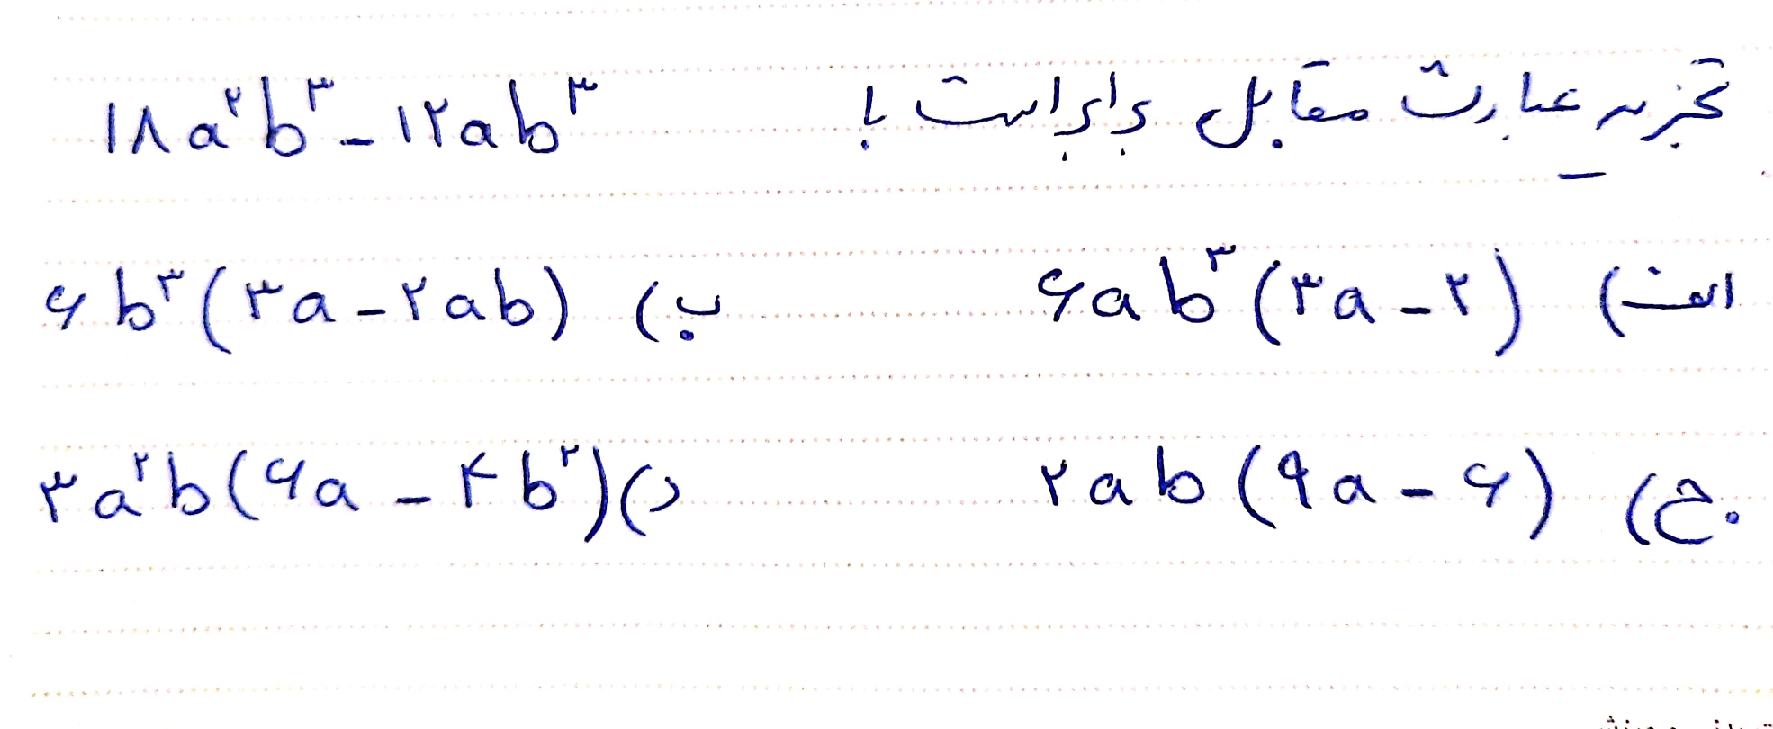 تجزیه عبارت مقابل برابر است با ۱۸a²b³ - ۱۲ab³
الف) ۶ab³(۳a-۲) ب) ۶b³(۳a-۲ab)
ج) ۲ab(۹a-۶) د) ۳a²b(۶a-۴b²)